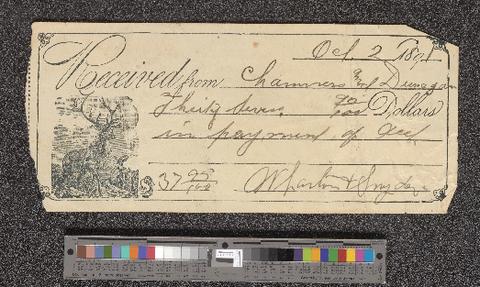 Oct 2 1891
Received from Chamness and Dunagan
Thirty Seven /100 Dollars
in payment of
$37 /100 Wharton & Snyder